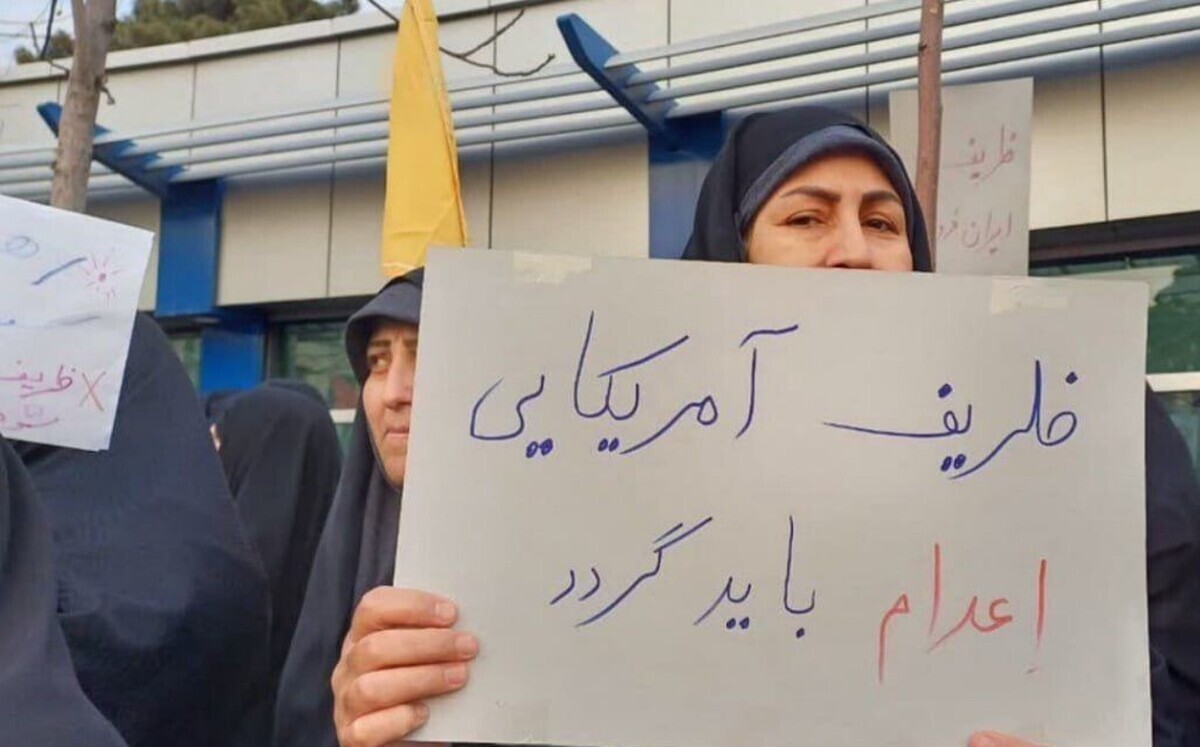 ظریف آمریکایی
اعدام باید گردد
ظریف
ایران فرو
ظریف